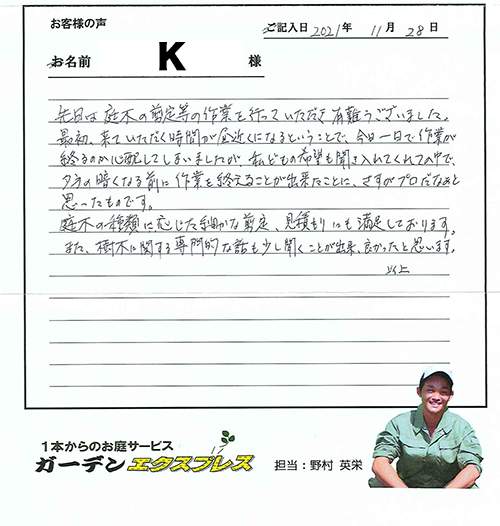 お客様の声
ご記入日 2021 年 11 月 28 日
お名前 K 様
先日は庭木の剪定等の作業を行っていただき有難うございました。
最初、来ていただく時間が昼近くになるということで、今日一日で作業が
終るのか心配してしまいましたが、私どもの希望も聞き入れてくれての中で、
夕方の暗くなる前に作業を終えることが出来たことに、さすがプロだなあと
思ったものです。
庭木の種類に応じた細かな剪定、見積もりにも満足しております。
また、樹木に関する専門的な話も少し聞くことが出来、良かったと思います。
以上
1本からのお庭サービス
ガーデンエクスプレス
担当：野村 英栄